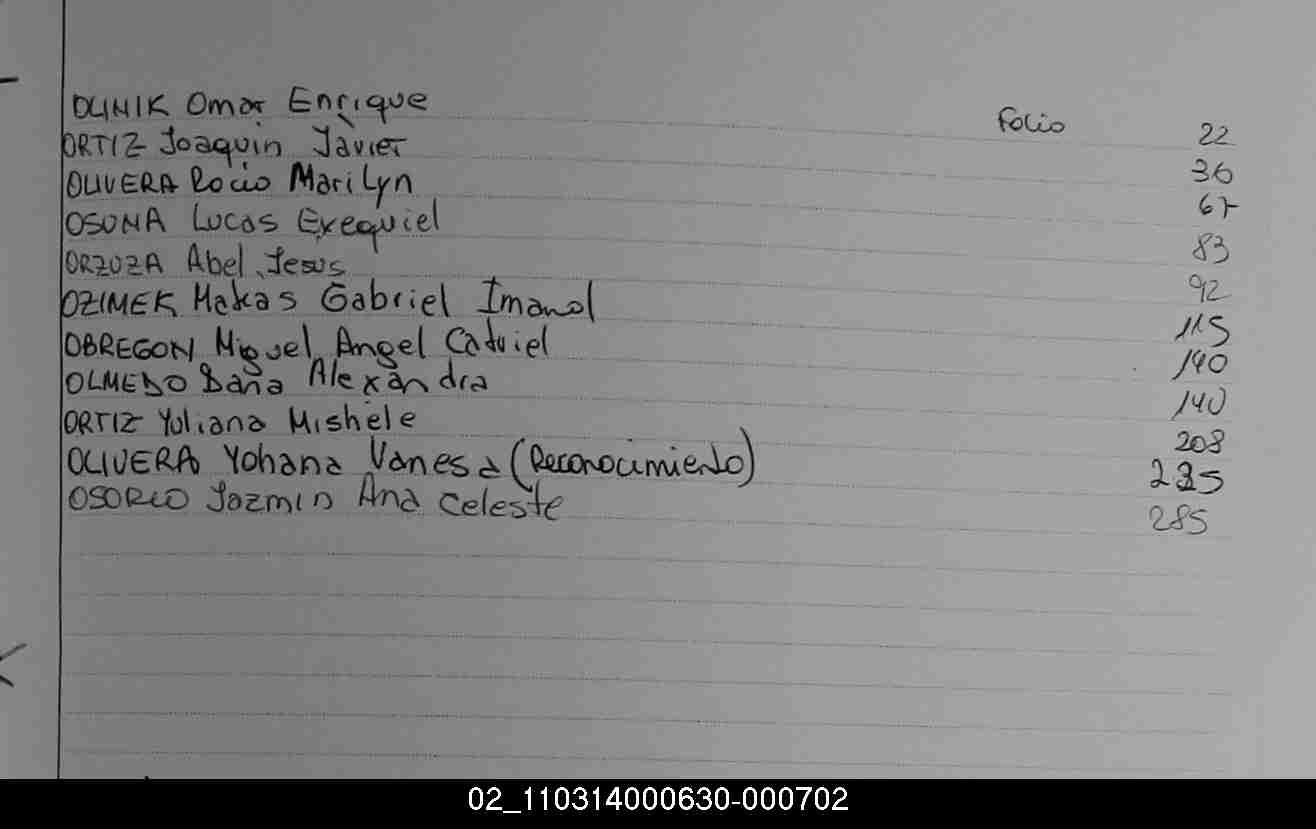 OLINIK Omar Enrique Folio 22
ORTIZ Joaquin Javier 36
OLIVERA Rocio Marilyn 67
OSUNA Lucas Exequiel 83
ORZUZA Abel Jesus 92
OZIMEK Makas Gabriel Imanol 115
OBREGON Miguel Angel Catriel 140
OLMEDO Dana Alexandra 140
ORTIZ Yuliana Mishele 208
OLIVERA Yohana Vanesa (Reconocimiento)
OSORIO Jazmin Ana Celeste 285
02_110314000630-000702